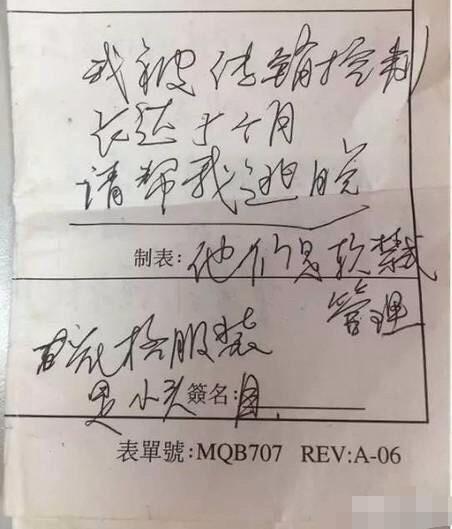 我被传销控制
长达十个月
请帮我逃脱
制表: 他们是软禁式
管理
花格服装
是小头 簽名: 目
表單號:MQB707 REV:A-06